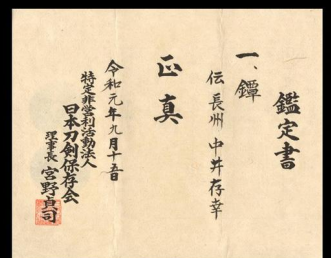 鑑定書
一、鐔
伝 長州 中井存幸
正真
令和元年九月十五日
特定非営利活動法人
日本刀剣保存会
理事長 宮野貞司